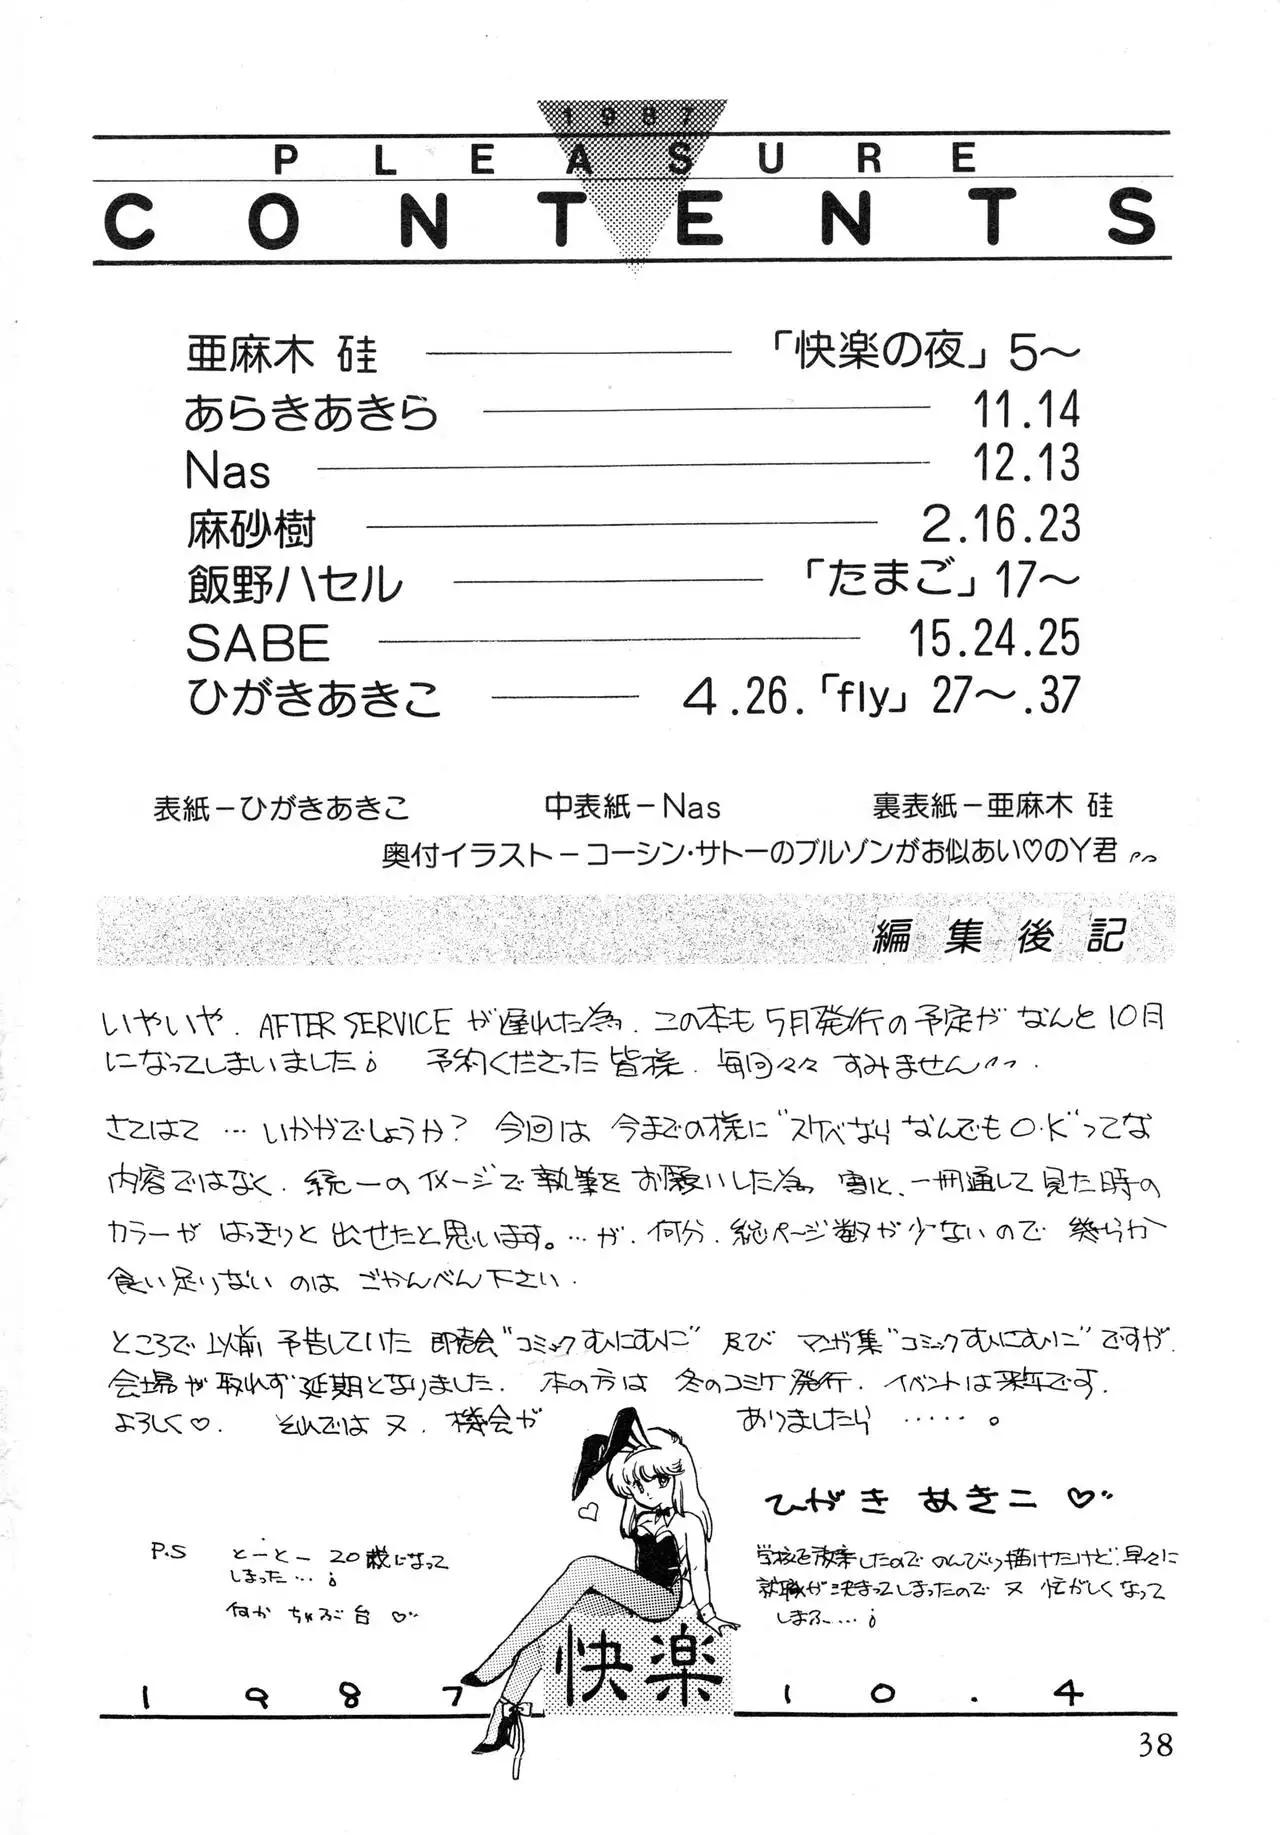 1987
PLEASURE
CONTENTS
亜麻木 硅 ――― 「快楽の夜」5〜
あらきあきら ――― 11.14
Nas ――― 12.13
麻砂樹 ――― 2.16.23
飯野ハセル ――― 「たまご」17〜
SABE ――― 15.24.25
ひがきあきこ ――― 4.26.「fly」27〜.37
表紙−ひがきあきこ 中表紙−Nas 裏表紙−亜麻木 硅
奥付イラスト−コーシン・サトーのブルゾンがお似あい♡のY君
編集後記
いやいや. AFTER SERVICEが遅れた為、この本も5月発行の予定がなんと10月
になってしまいました¡ 予約くださった皆様. 毎回々々すみません
さてはて…いかがでしょうか? 今回は今までの様に“スケベならなんでもO.K”ってな
内容ではなく. 統一のイメージで執筆をお願いした為、割と、一冊通して見た時の
カラーがはっきりと出せたと思います。…が. 何分. 総ページ数が少ないので幾らか
食い足りないのはごかんべん下さい.
ところで以前予告していた即売会“コミックむにむに”及びマンガ集“コミックむにむに”ですが.
会場が取れず延期となりました. 本の方は冬のコミケ発行. イベントは来年です.
よろしく♡. それでは又. 機会がありましたら……。
ひがきあきこ♡
P.S とーとー20歳になって
しまった…¡
何かちゃぶ台♡
学校を放棄したのでのんびり描けたけど、早々に
就職が決まってしまったので又忙がしくなって
しまふ…¡
快楽
1987 10.4
38